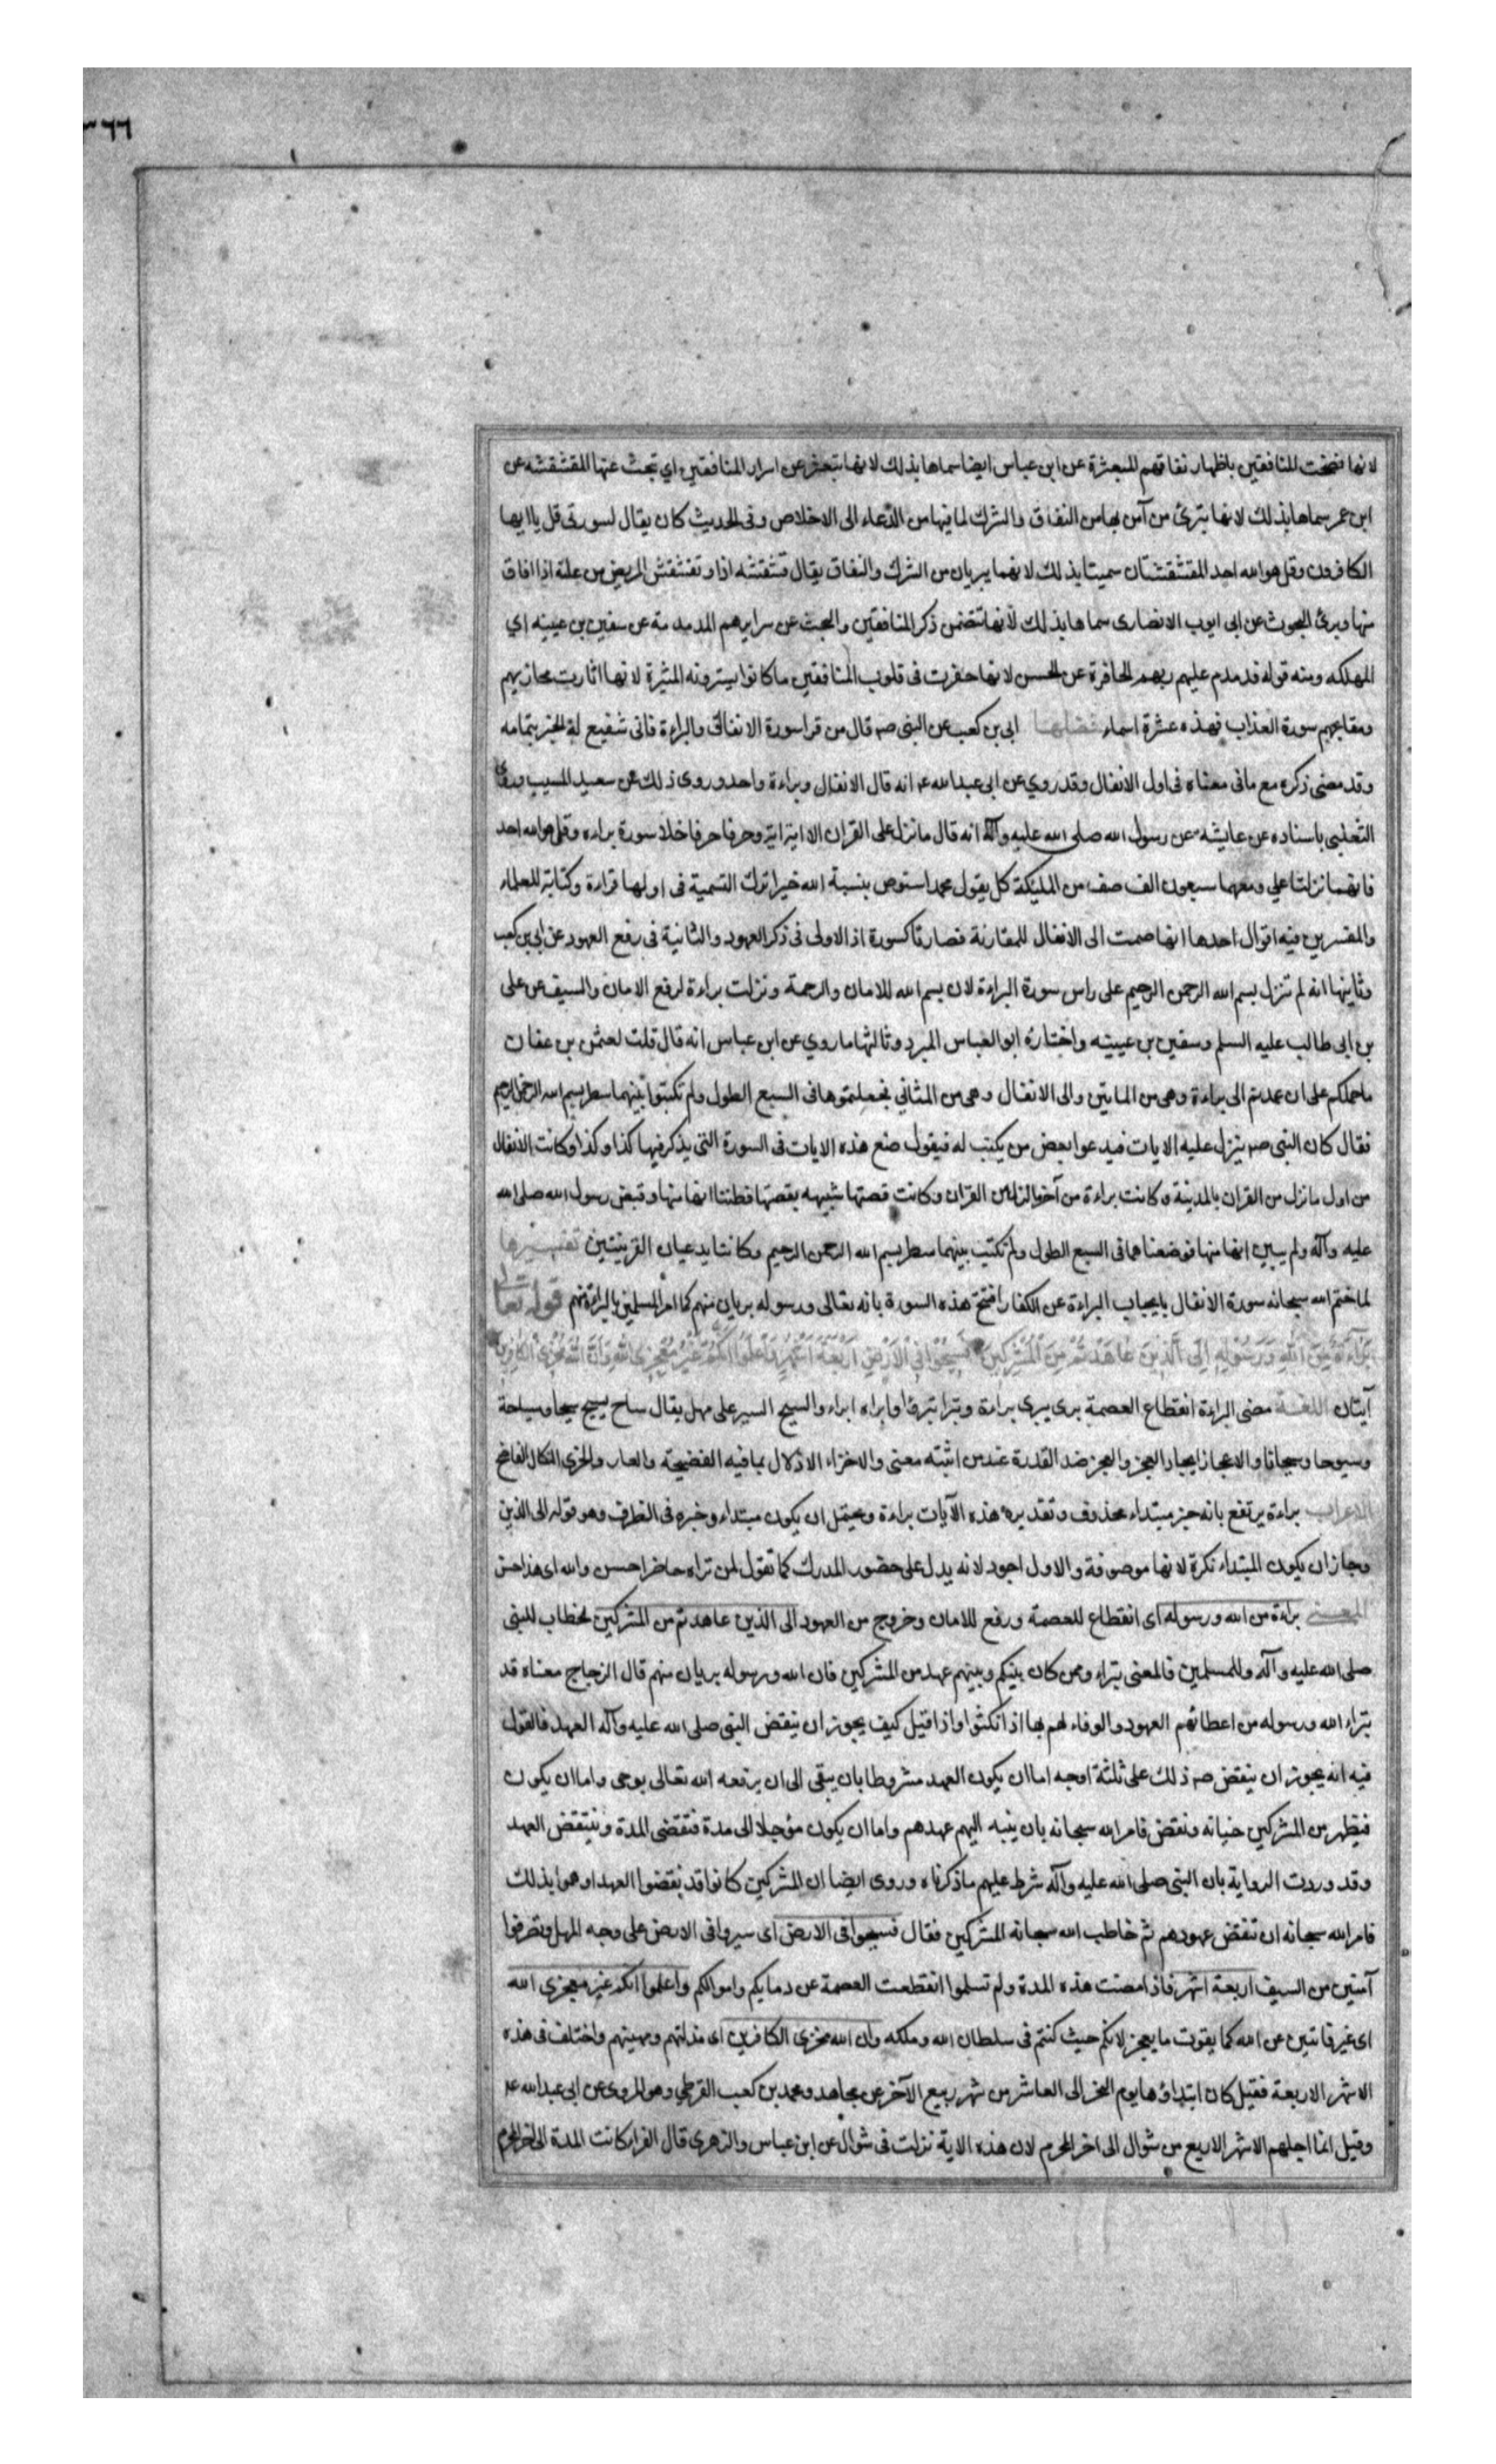 ٣٦٦
لانها فضحت المنافقين باظهار نفاقهم المبعثرة عن ابن عباس ايضا سماها بذلك لانها تبعثر عن اسرار المنافقين اي تبحث عنها المقشقشه عن
ابن عمر سماها بذلك لانها تبرئ من آمن بها من النفاق والشرك لما فيها من الدعاء الى الاخلاص وفى الحديث كان يقال لسورتى قل ياايها
الكافرون وقل هو الله احد المقشقشتان سميتا بذلك لانهما يبريان من الشرك والنفاق يقال قشقشه اذا و تقشقش المريض من علته اذا افاق
منها وبرئ البحوث عن ابى ايوب الانصارى سماها بذلك لانها تتضمن ذكر المنافقين والبحث عن سرايرهم المدمدمة عن سفين بن عيينه اي
المهلكه ومنه قوله فدمدم عليهم ربهم الحافرة عن الحسن لانها حفرت فى قلوب المنافقين ما كانوا يسترونه المثيرة لانها اثارت مخازيهم
ومقابحهم سورة العذاب فهذه عشرة اسماء فضلها ابى بن كعب عن النبى صم قال من قرا سورة الانفال والبراءة فانى شفيع له الخبر بتمامه
وقد مضى ذكره مع مافى معناه فى اول الانفال وقد روي عن ابى عبدالله عم انه قال الانفال وبراءة واحد وروى ذلك عن سعيد المسيب وروى
الثعلبى باسناده عن عايشة عن رسول الله صلى الله عليه وآله انه قال ما نزل على القران الا اية اية وحرفا حرفا خلا سورة براءه وقل هو الله احد
فانهما نزلتا علي ومعهما سبعون الف صف من المليكة كل يقول محمد استوص بنسبة الله خيرا ترك التسمية فى اولها قراءة وكتابة للعلماء
والمفسرين فيه اقوال احدها انها ضمت الى الانفال للمقارنة فصارتا كسورة اذ الاولى فى ذكر العهود والثانية فى رفع العهود عن ابي بن كعب
وثانيها انه لم تنزل بسم الله الرحمن الرحيم على راس سورة البراءة لان بسم الله للامان والرحمة ونزلت براءة لرفع الامان والسيف عن على
بن ابى طالب عليه السلم وسفين بن عيينه واختاره ابو العباس المبرد وثالثها ما روي عن ابن عباس انه قال قلت لعثمن بن عفان
ما حملكم على ان عمدتم الى براءة وهى من المايتين والى الانفال وهى من المثاني فجعلتموها فى السبع الطول ولم تكتبوا بينهما سطر بسم الله الرحمن الرحيم
فقال كان النبى صم ينزل عليه الايات فيدعوا بعض من يكتب له فيقول ضع هذه الايات فى السورة التى يذكر فيها كذا وكذا وكانت الانفال
من اول ما نزل من القران بالمدينة وكانت براءة من آخر ما نزل من القران وكانت قصتها شبيهه بقصتها فظننا انها منها وقبض رسول الله صلى الله
عليه وآله ولم يبين انها منها فوضعناهما فى السبع الطول ولم نكتب بينهما سطر بسم الله الرحمن الرحيم وكانتا يدعيان القرينتين تفسيرها
لما ختم الله سبحانه سورة الانفال بايجاب البراءة عن الكفار افتتح هذه السورة بانه تعالى ورسوله بريان منهم كما امر المسلمين بالبراءة منهم قوله تعالى
براءة من الله ورسوله الى الذين عاهدتم من المشركين فسيحوا فى الارض اربعة اشهر واعلموا انكم غير معجزى الله وان الله مخزى الكافرين
آيتان اللغة معنى البراءة انقطاع العصمة برى يبرى براءة وتبرا تبرءا وابراه ابراء والسيح السير على مهل يقال ساح يسيح سيحا وسياحة
وسيوحا وسيحانا والاعجاز ايجاد العجز والعجز ضد القدرة عند من اثبته معنى والاخزاء الاذلال بما فيه الفضيحة والعار والخزى النكال الفاضح
الاعراب براءة يرتفع بانه خبر مبتداء محذوف وتقديره هذه الآيات براءة ويحتمل ان يكون مبتداء وخبره فى الظرف وهو قوله الى الذين
وجاز ان يكون المبتداء نكرة لانها موصوفة والاول اجود لانه يدل على حضور المدرك كما تقول لمن تراه حاضرا حسن والله اى هذا حسن
المعنى براءة من الله ورسوله اى انقطاع للعصمة ورفع للامان وخروج من العهود الى الذين عاهدتم من المشركين الخطاب للنبى
صلى الله عليه وآله وللمسلمين فالمعنى تبراء وممن كان بينكم وبينهم عهد من المشركين فان الله ورسوله بريان منهم قال الزجاج معناه قد
تبراء الله ورسوله من اعطائهم العهود والوفاء لهم بها اذا نكثوا واذا قيل كيف يجوز ان ينقض النبى صلى الله عليه وآله العهد فالقول
فيه انه يجوز ان ينقض صم ذلك على ثلثة اوجه اما ان يكون العهد مشروطا بان يبقى الى ان يرفعه الله تعالى بوحى واما ان يكون
فيظهر من المشركين خيانه ونقض فامر الله سبحانه بان ينبه اليهم عهدهم واما ان يكون مؤجلا الى مدة فتقضى المدة وينتقض العهد
وقد وردت الرواية بان النبى صلى الله عليه وآله شرط عليهم ماذكرناه وروى ايضا ان المشركين كانوا قد نقضوا العهد او هموا بذلك
فامر الله سبحانه ان تنقض عهودهم ثم خاطب الله سبحانه المشركين فقال فسيحوا فى الارض اى سيروا فى الارض على وجه المهل وتصرفوا
آمنين من السيف اربعة اشهر فاذا مضت هذه المدة ولم تسلموا انقطعت العصمة عن دمايكم واموالكم واعلموا انكم غير معجزى الله
اى غير فائتين عن الله كما يفوت ما يعجز لانكم حيث كنتم فى سلطان الله وملكه وان الله مخزى الكافرين اى مذلتهم ومهينهم واختلف فى هذه
الاشهر الاربعة فقيل كان ابتداؤها يوم النحر الى العاشر من شهر ربيع الآخر عن مجاهد ومحمد بن كعب القرظي وهو المروى عن ابى عبدالله عم
وقيل انما اجلهم الاشهر الاربع من شوال الى اخر المحرم لان هذه الاية نزلت فى شوال عن ابن عباس والزهرى قال الفراء كانت المدة الى اخر المحرم